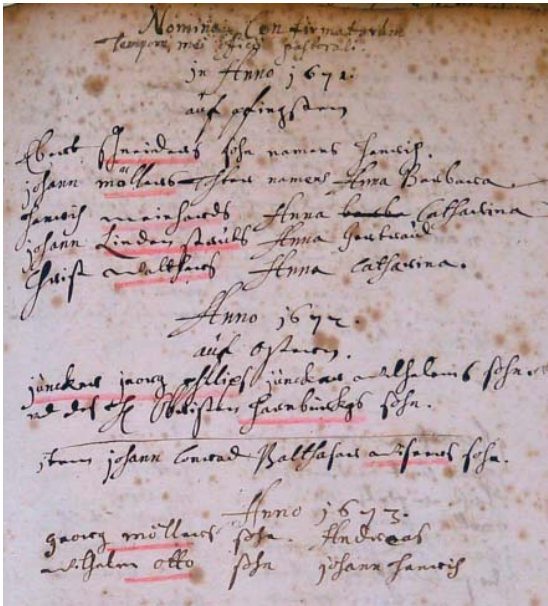 Nomina Confirmatorum
Tempore mei officij pastorali.
in Anno 1671.
auf pfingsten
Ebert Schneiders sohn namens Henrich.
Johann möllers Tochter namens Anna Barbara.
Henrich meinhards Anna Catharina
Johann Linden Anna Gertraud
Christ walthers Anna Catharina.
Anno 1672.
auf Ostern.
junckers georg philips junckers wilhelms sohn.
sohn.
item johann Conrad Balthasar sohn.
Anno 1673.
georg möllers sohn. Andreas
wilhelm otto sohn johann Henrich